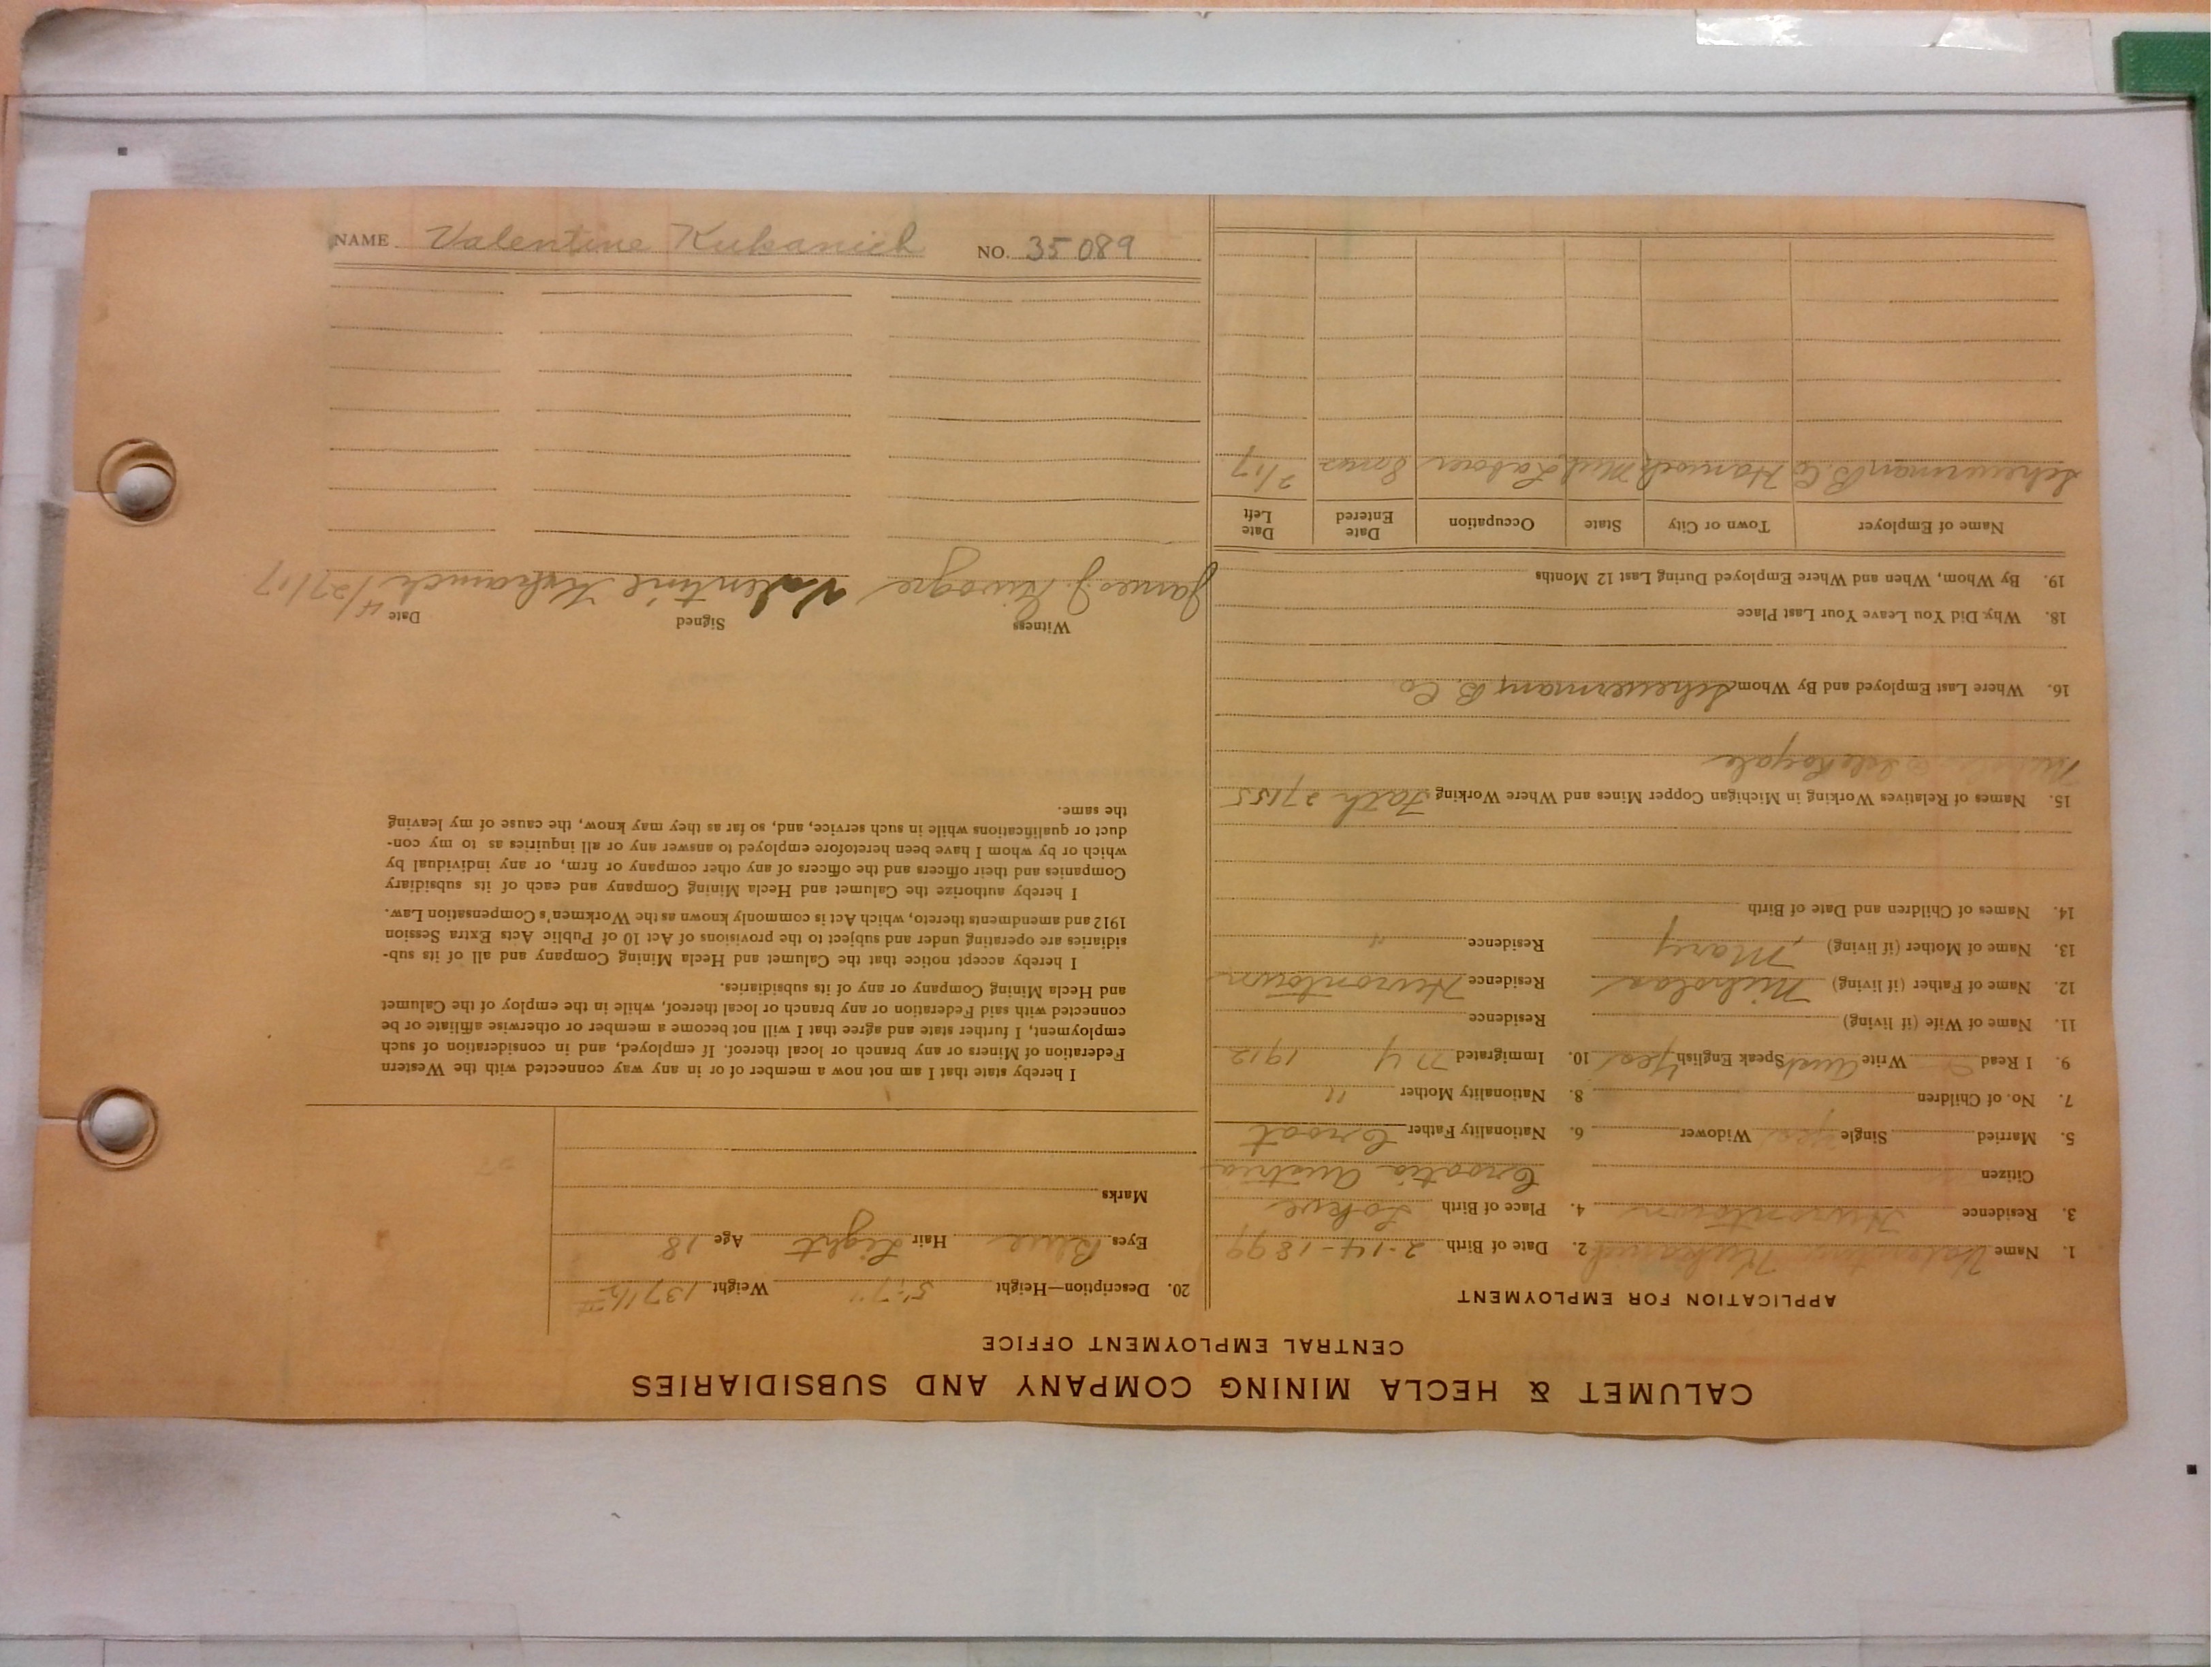 CALUMET & HECLA MINING COMPANY AND SUBSIDIARIES
CENTRAL EMPLOYMENT OFFICE
APPLICATION FOR EMPLOYMENT
1. Name Valentine Kukanich 2. Date of Birth 2-14-1899
3. Residence Hurontown 4. Place of Birth Lokve
Citizen Croatia Austria
5. Married Single yes Widower 6. Nationality Father Croat
7. No. of Children 8. Nationality Mother "
9. I Read Write Aust Speak English yes 10. Immigrated 1912
11. Name of Wife (if living) Residence
12. Name of Father (if living) Nicholas Residence Hurontown
13. Name of Mother (if living) Mary Residence "
14. Names of Children and Date of Birth
15. Names of Relatives Working in Michigan Copper Mines and Where Working Fath 27155
Isle Royale
16. Where Last Employed and By Whom Scheuermann B. Co.
18. Why Did You Leave Your Last Place
19. By Whom, When and Where Employed During Last 12 Months
Name of Employer Town or City State Occupation Date Entered Date Left
Scheuerman B. Co Hancock Mich Laborer 8 mos 2/17
20. Description—Height 5'-7" Weight 137 1/2
Eyes Blue Hair Light Age 18
Marks
I hereby state that I am not now a member of or in any way connected with the Western
Federation of Miners or any branch or local thereof. If employed, and in consideration of such
employment, I further state and agree that I will not become a member or otherwise affiliate or be
connected with said Federation or any branch or local thereof, while in the employ of the Calumet
and Hecla Mining Company or any of its subsidiaries.
I hereby accept notice that the Calumet and Hecla Mining Company and all of its sub-
sidiaries are operating under and subject to the provisions of Act 10 of Public Acts Extra Session
1912 and amendments thereto, which Act is commonly known as the Workmen's Compensation Law.
I hereby authorize the Calumet and Hecla Mining Company and each of its subsidiary
Companies and their officers and the officers of any other company or firm, or any individual by
which or by whom I have been heretofore employed to answer any or all inquiries as to my con-
duct or qualifications while in such service, and, so far as they may know, the cause of my leaving
the same.
Witness Signed Date
James J. Valentine Kukanich 4/27/17
NAME Valentine Kukanich NO. 35089